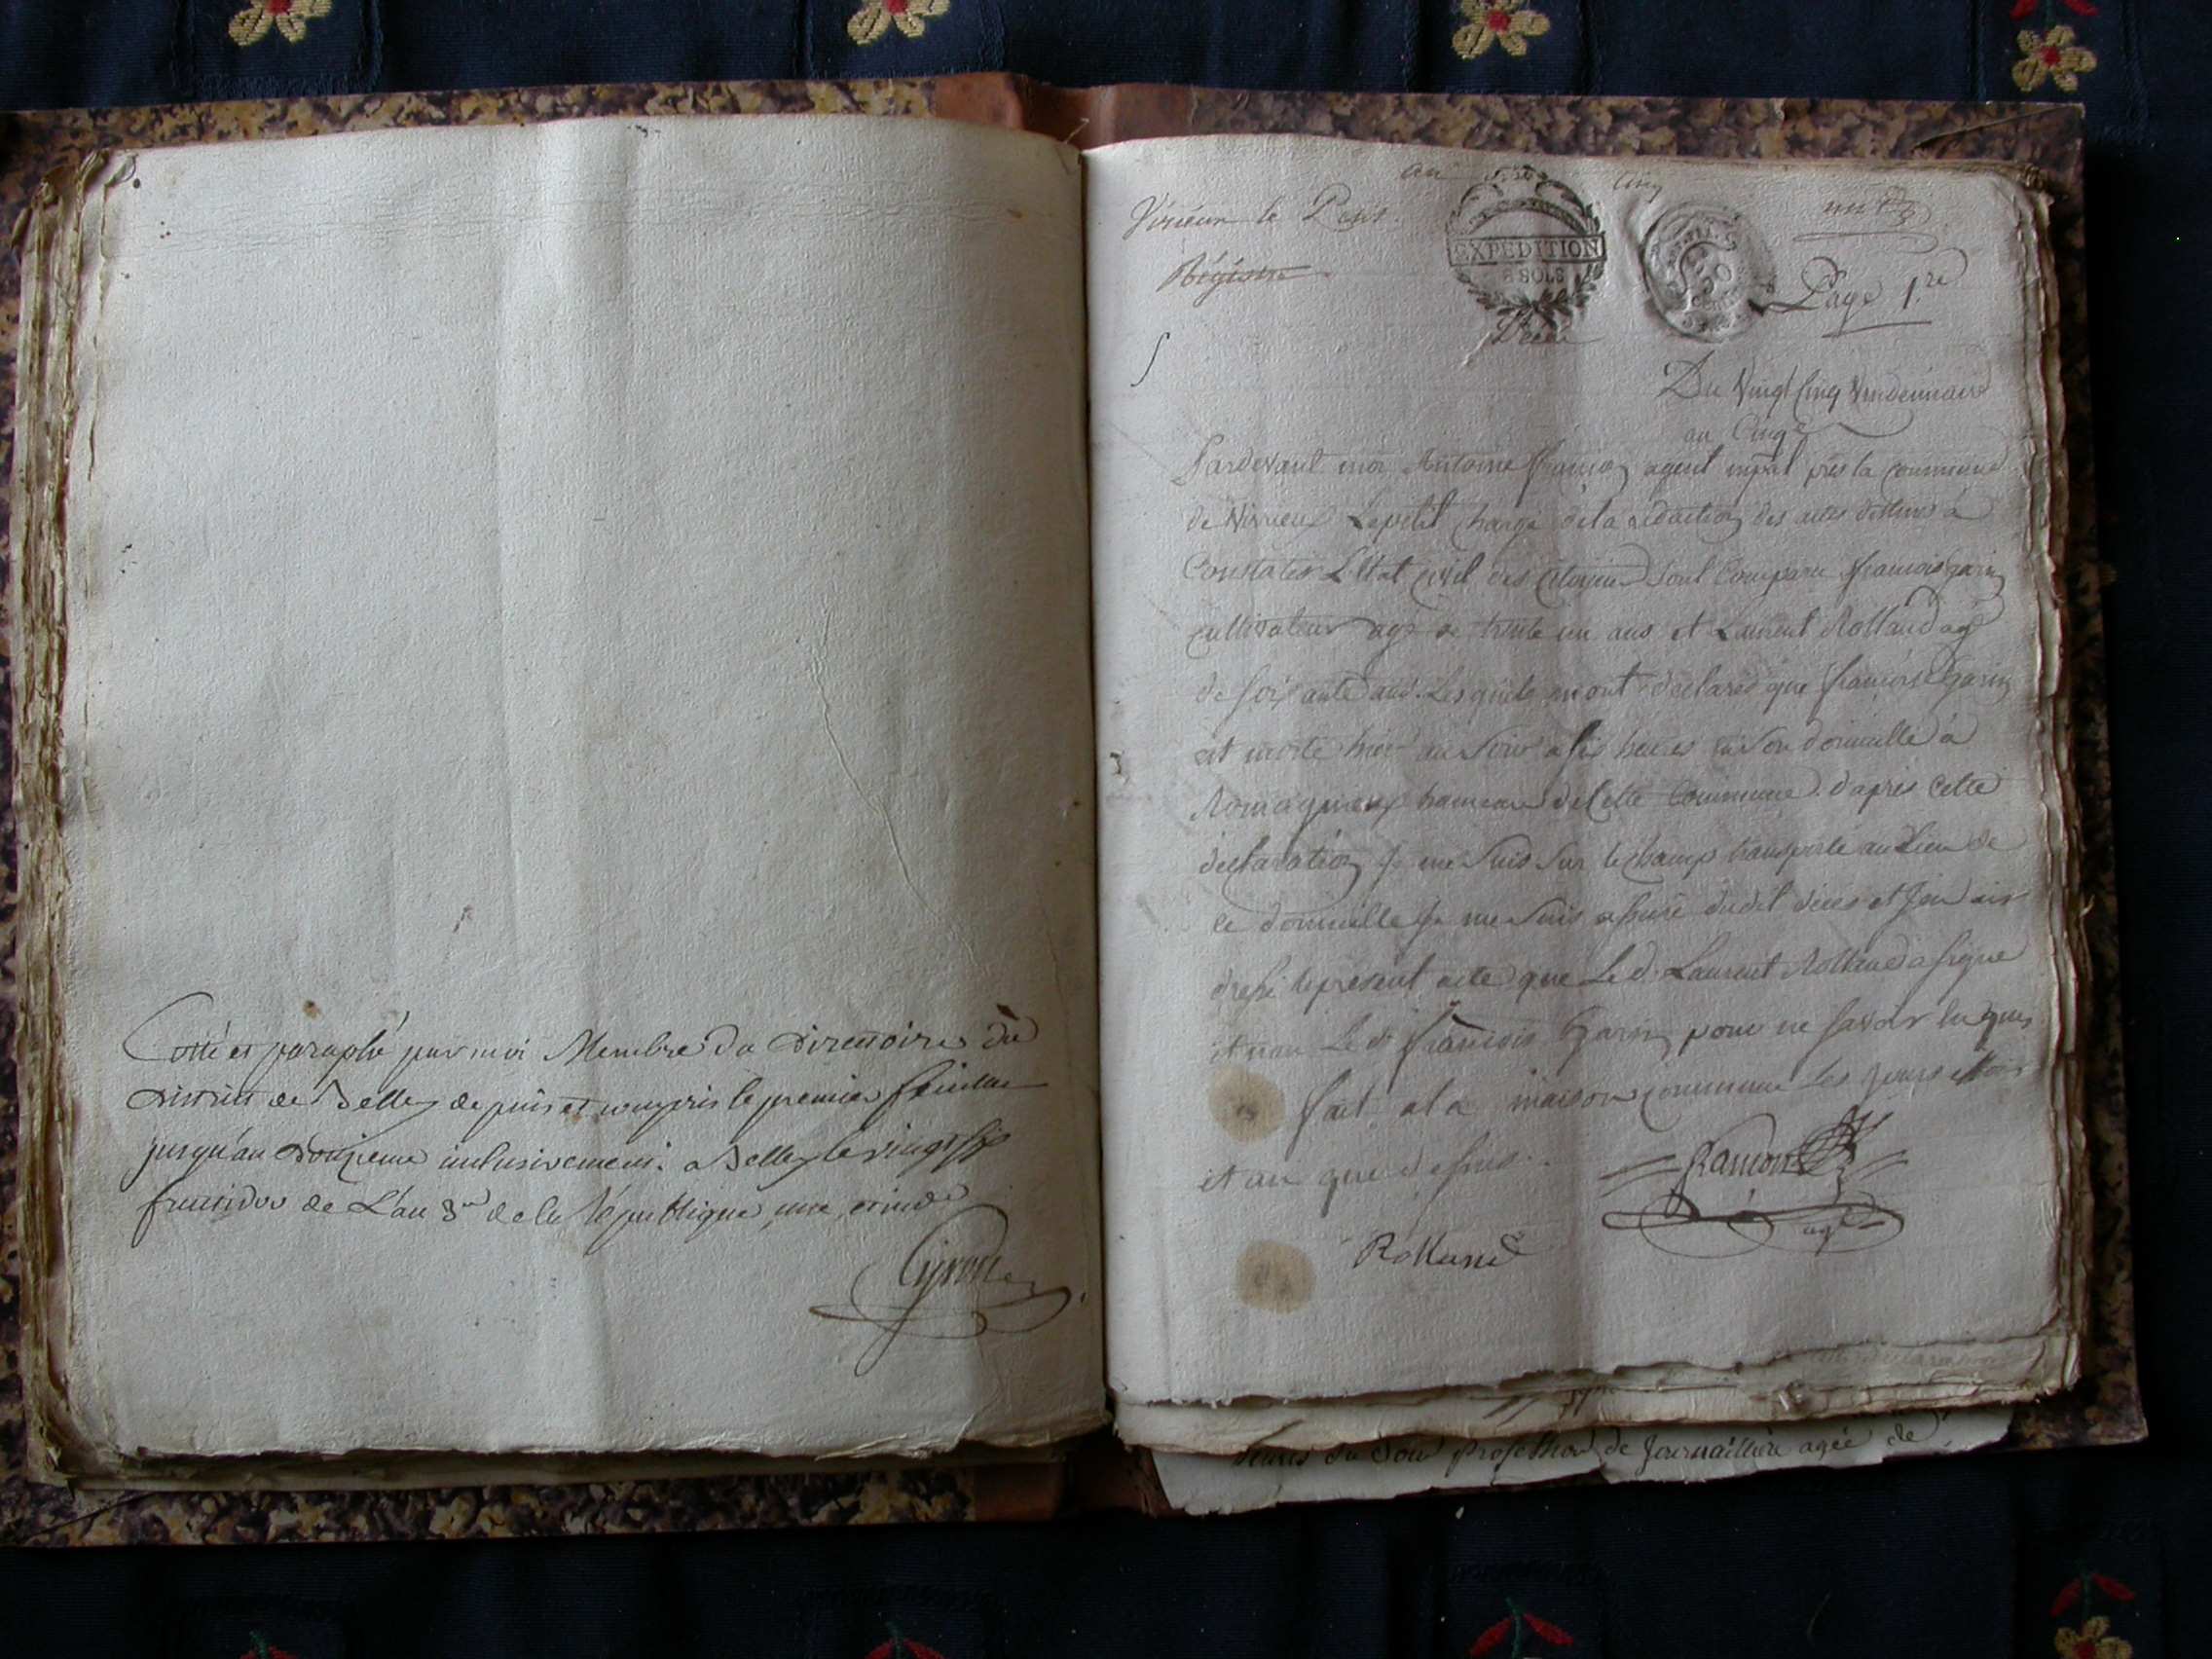 Cotté et paraphé par moi Membre du Directoire du
District de Belley depuis et compris le premier feuillet
jusqu'au douzieme inclusivement. a Belley le vingt six
fructidor de L'an 3me de la République, une, et ind
an cinq
Virieux le Petit
EXPEDITION
8 SOLS
Page 1.re
Décès
Du Vingt Cinq Vendemiaire
an Cinq
Pardevant moi Antoine françon agent mpal près la commune
de Virieux Lepetit chargé dela rédaction des actes destinés à
Constater L'Etat civil des citoyens Sont Comparu françois garin
cultivateur agé de trente un ans et Laurent Rolland agé
de soixante ans. Lesquels mont déclaré que françoise Garin
est morte hier au Soir a six heures en Son domicille à
Romagnieux hameau de Cette Commune. d'après cette
déclaration Je me Suis Sur le champ transporté au Lieu de
ce domicille Je me Suis assuré dudit décès et Jen ais
dressé le présent acte que Le d. Laurent Rolland a signé
et non Le d. françois Garin pour ne savoir enquis
fait a la maison commune Les Jours et mois
et an que dessus.
françon
agt
Rolland
heures du Soir de agée de